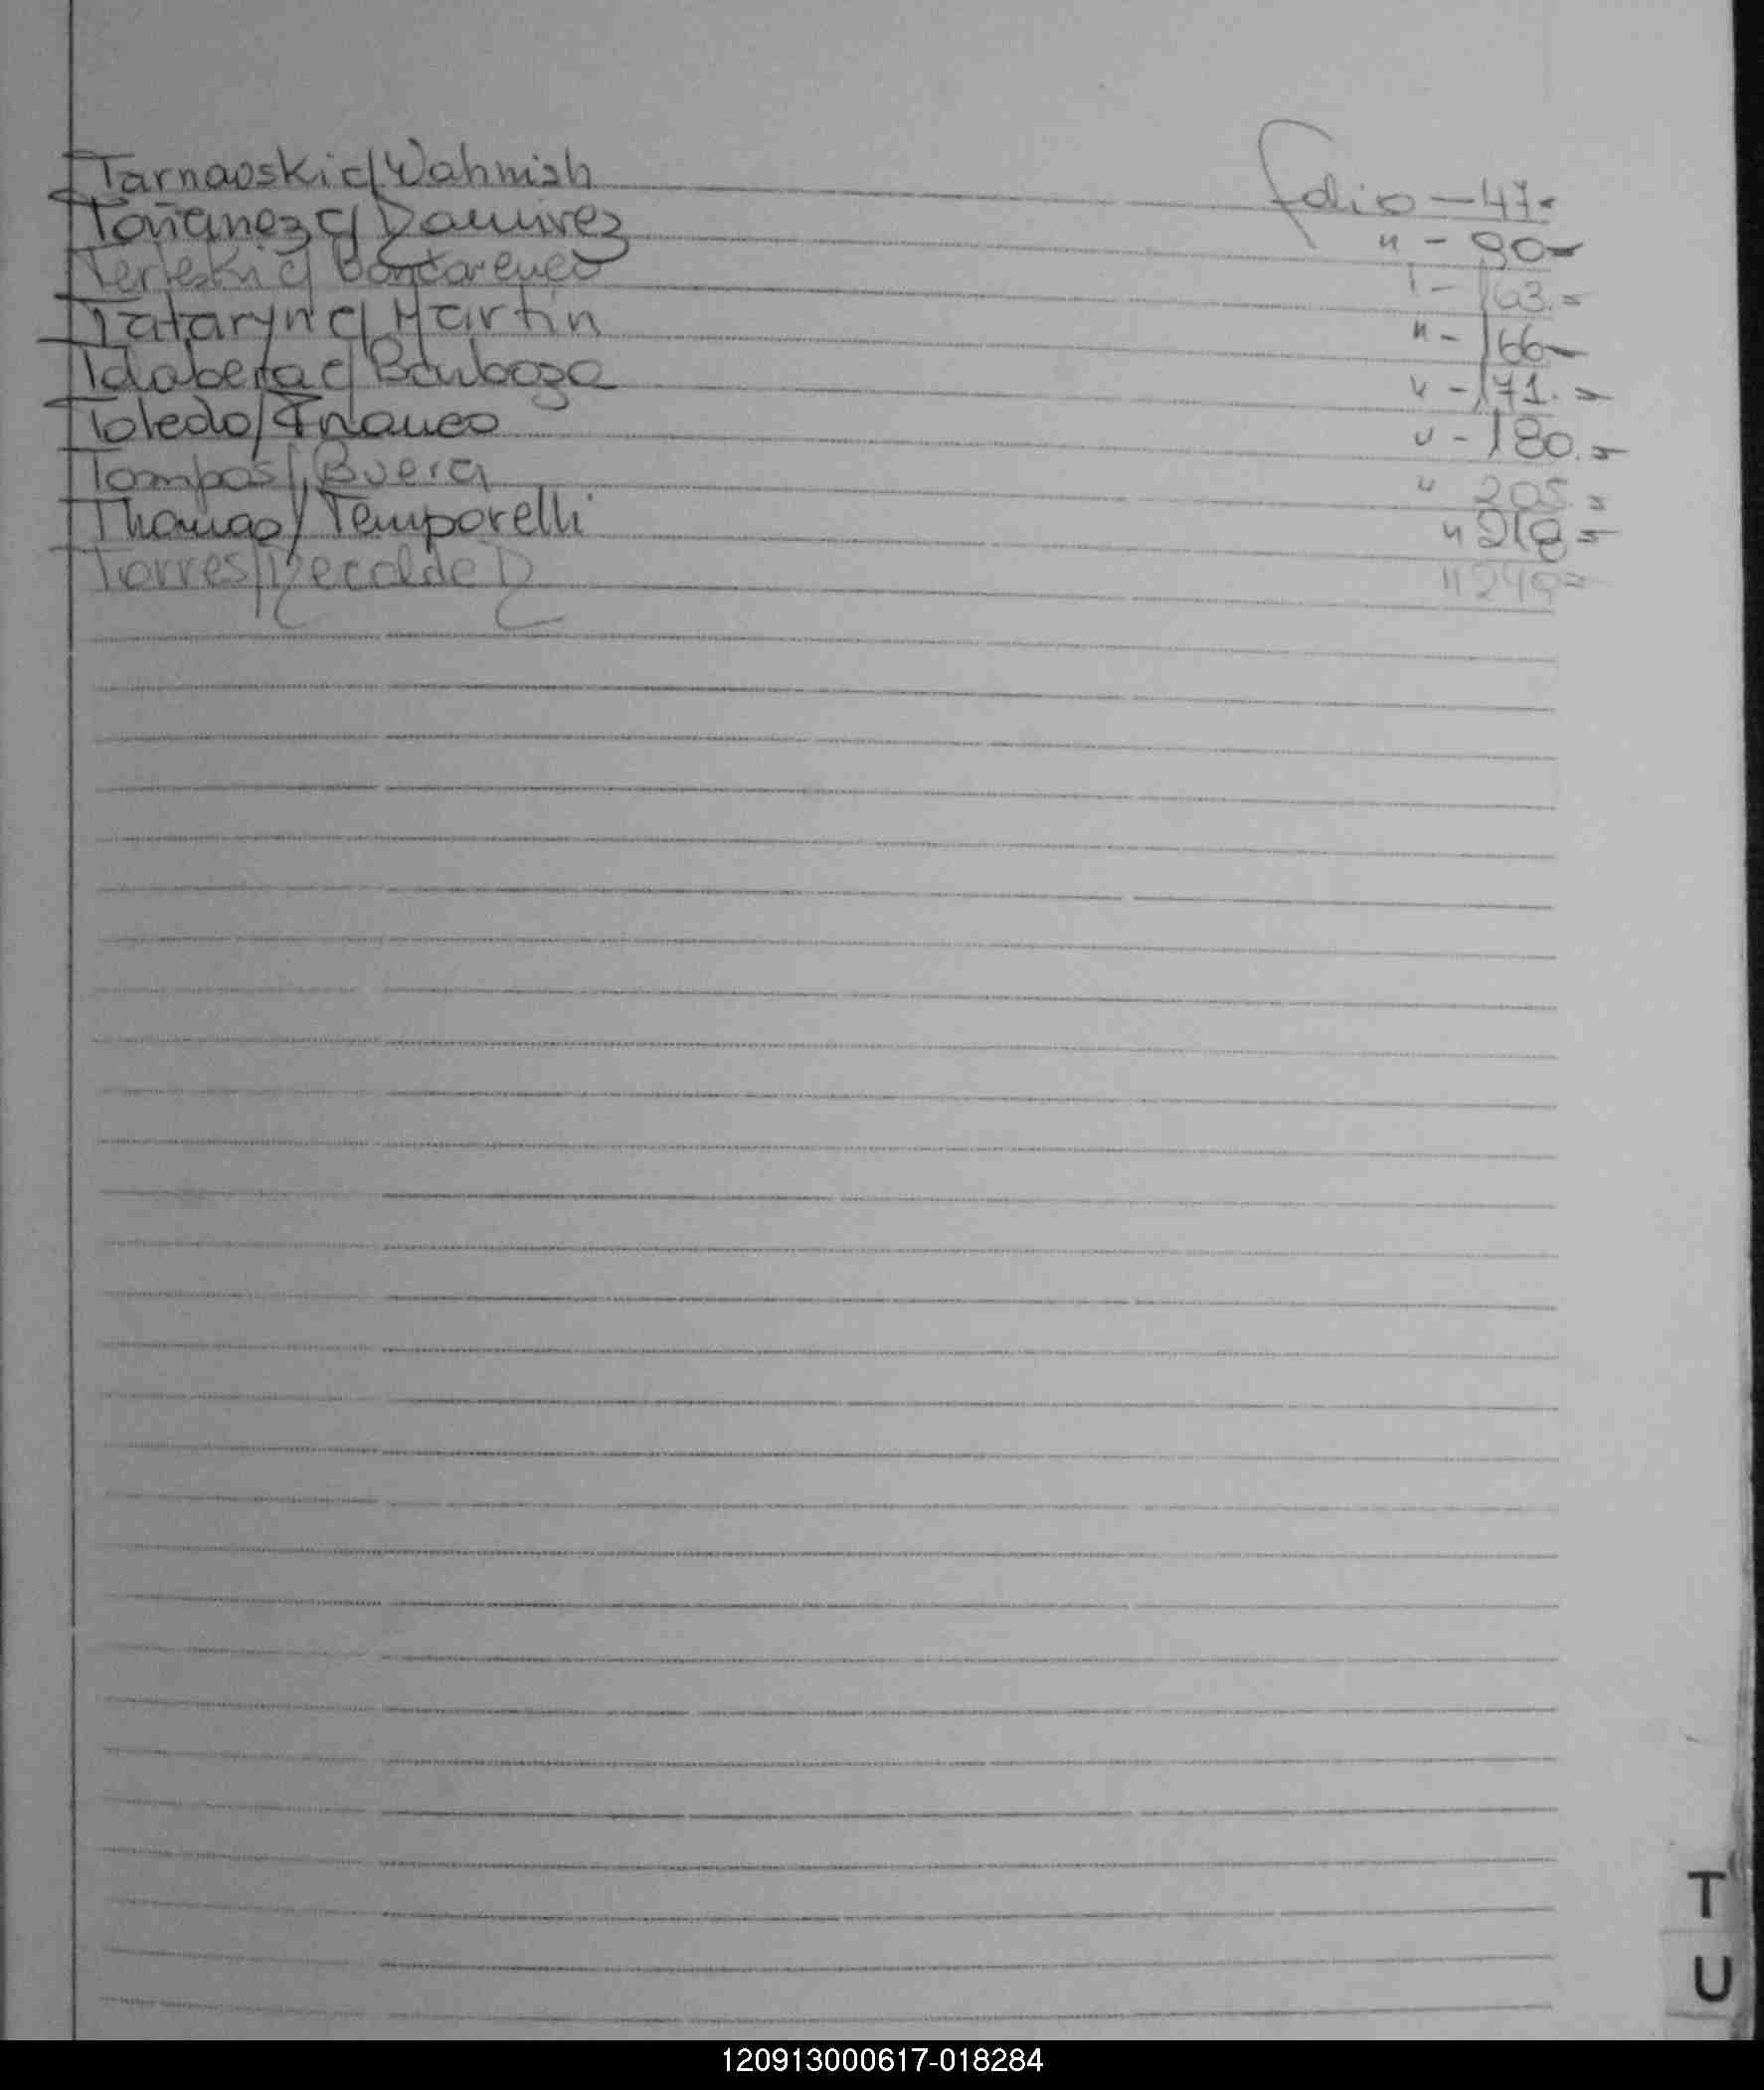 Tarnaoski c/ Wahnish folio - 47.-
Toñanez c/ Ramirez " - 90-
Terleski c/ Bondarenco " - 163.=
Tataryn c/ Martin " - 166-
c/ Barboza " - 171.=
Toledo/ Franco " - 180.=
Tompos/ Buera " 205.=
Thomas/ Temporelli " 218=
Torres/ Recalde R " 249=
T
U
120913000617-018284